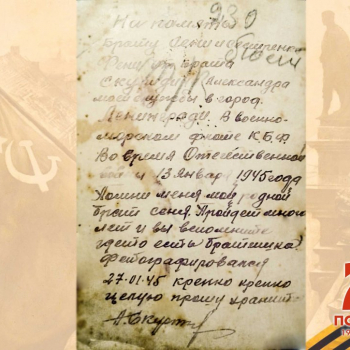 На память 930
брату Сени
от брата
Александра
моей службы в город.
Ленинграде. В военно-
морском флоте К.Б.Ф.
Во время Отечественной
13 Января 1945 года
Помни меня мой родной
брат Сеня. Пройдет много
лет и вы вспомните
где то есть братишка.
Фотографировался
27-01-45 крепко крепко
целую прошу хранить
7
ПО